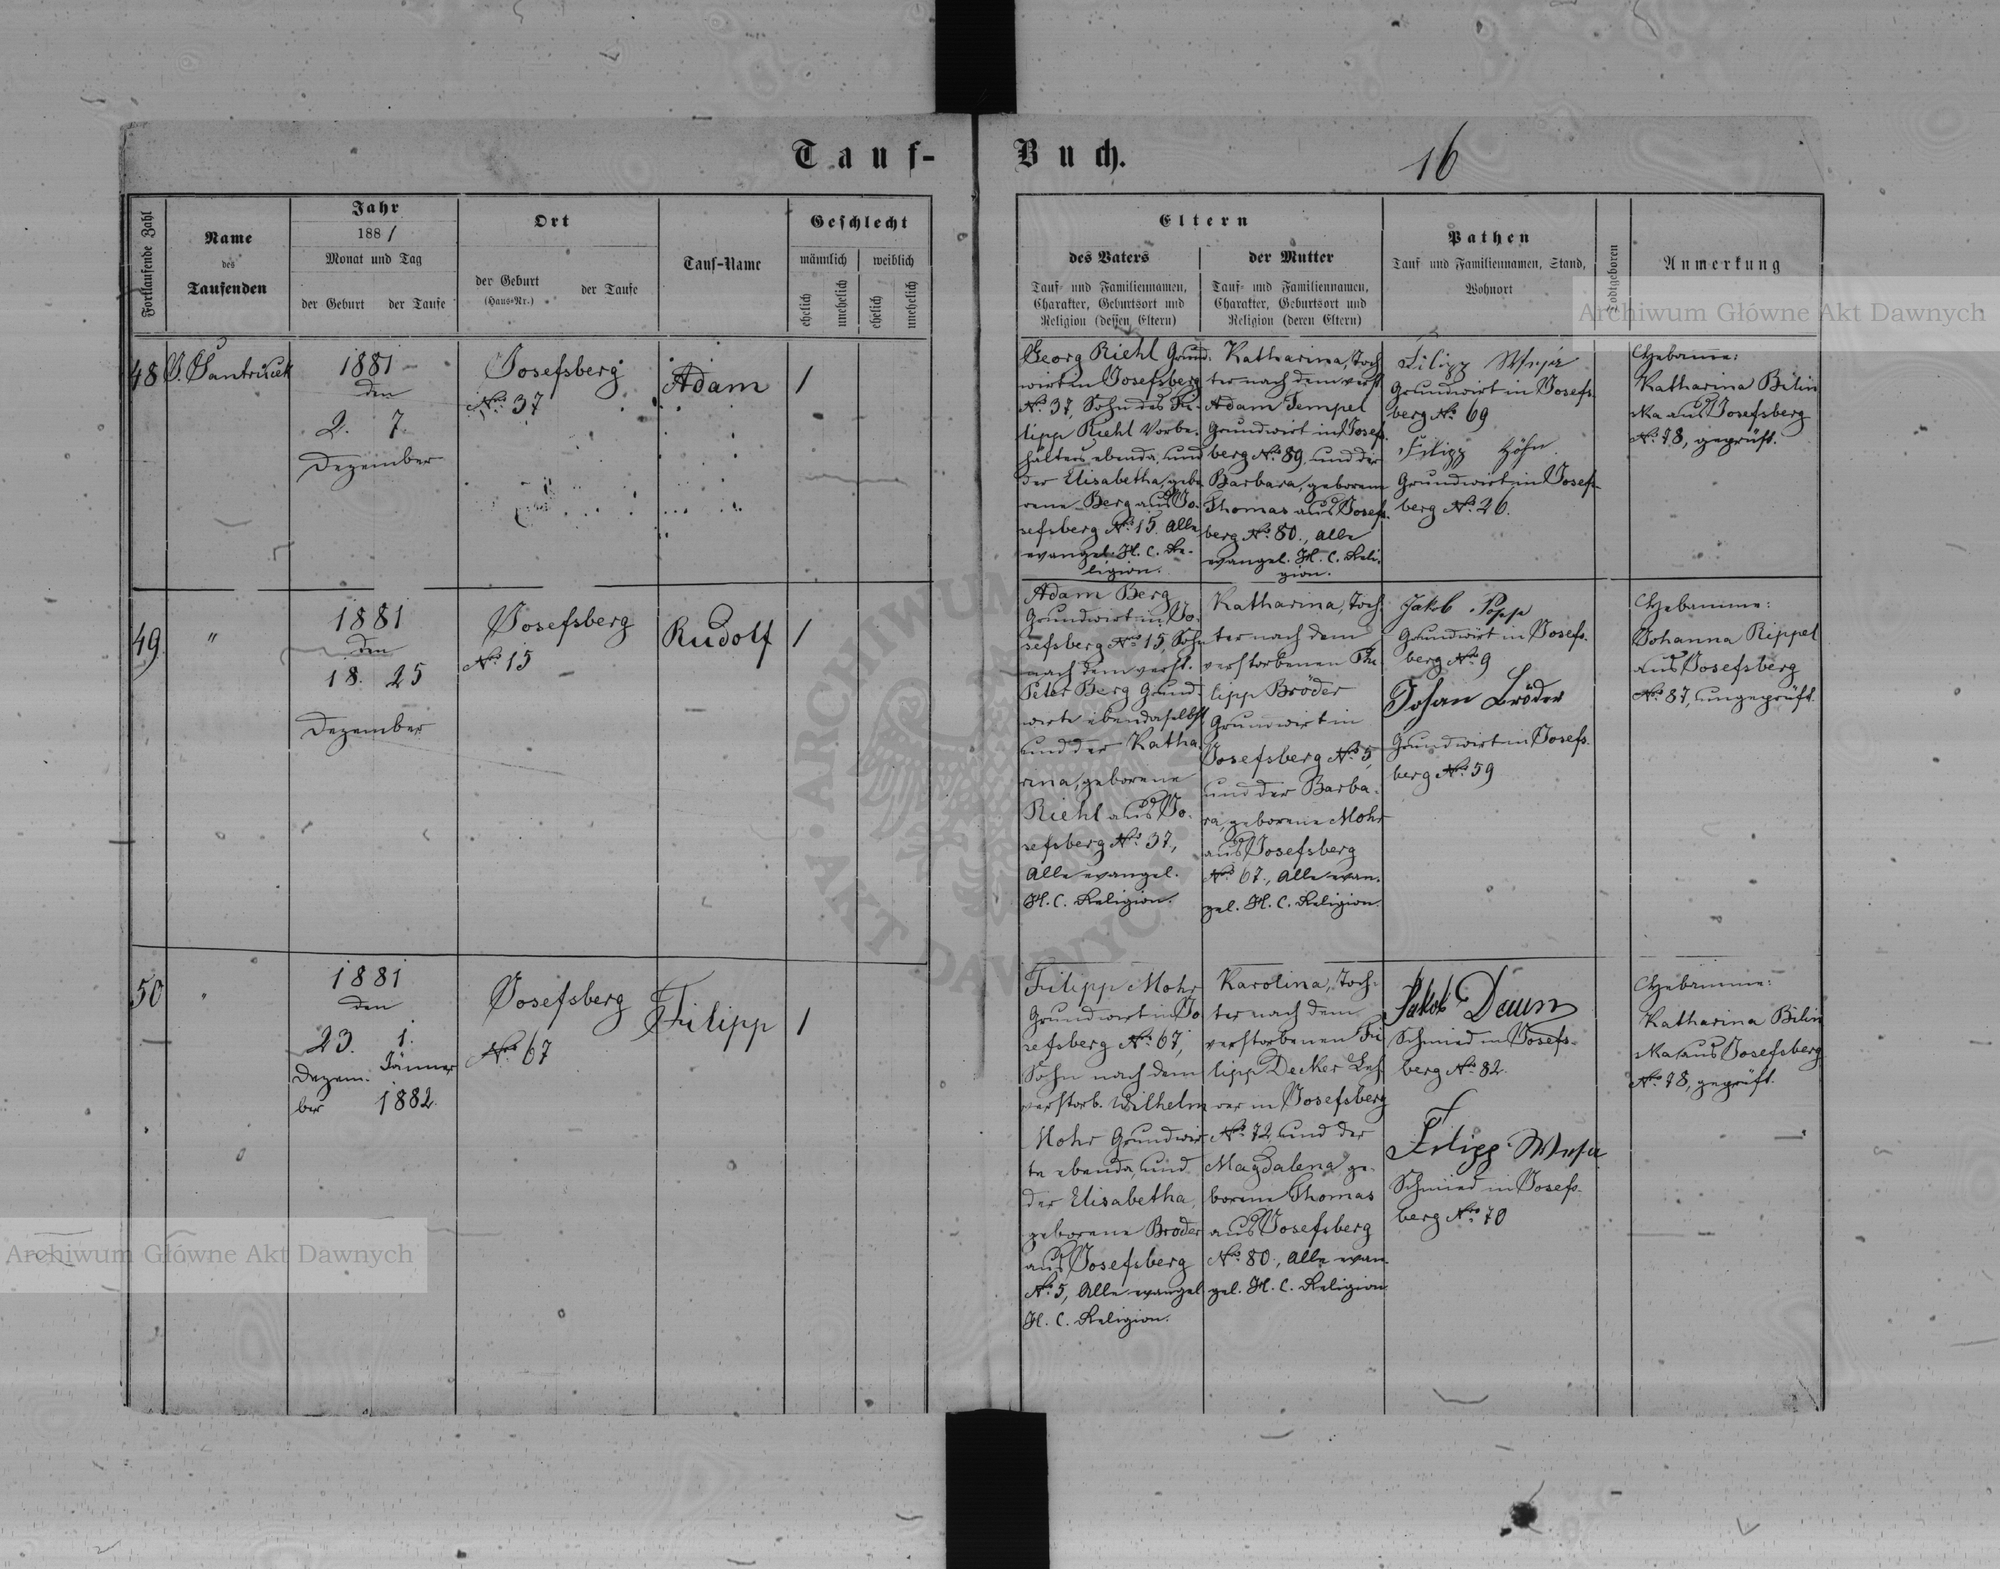 Tauf-
Buch.
16
Fortlaufende Zahl
Name
des
Taufenden
Jahr
1881
Monat und Tag
der Geburt
der Taufe
Ort
der Geburt
(Haus-Nr.)
der Taufe
Tauf-Name
Geschlecht
männlich
weiblich
ehelich
unehelich
ehelich
unehelich
Eltern
des Vaters
Tauf- und Familiennamen,
Charakter, Geburtsort und
Religion (dessen Eltern)
der Mutter
Tauf- und Familiennamen,
Charakter, Geburtsort und
Religion (deren Eltern)
Pathen
Tauf- und Familiennamen, Stand,
Wohnort
Todtgeboren
Anmerkung
48
1881
den
2. 7.
Dezember
Josefsberg
No. 37
Adam
1
Georg Riehl Grund-
wirt in Josefsberg
No. 37, Sohn des Fi-
lipp Riehl Vorbe-
hälters ebenda, und
der Elisabetha, gebo
rene Berg aus Jo-
sefsberg No. 15. Alle
evangel. H. C. Re-
ligion.
Katharina, Toch
ter nach dem verst.
Adam Tempel
Grundwirt in Josefs-
berg No. 89, und der
Barbara, geborene
Thomas aus Josefs-
berg No. 80., alle
evangel. H. C. Reli-
gion.
Filipp
Grundwirt in Josefs-
berg No. 69
Filipp Höhn
Grundwirt in Josefs-
berg No. 26.
Hebamme:
Katharina Bilin
ska aus Josefsberg
No. 78, geprüft.
49
"
1881
den
18. 25
Dezember
Josefsberg
No. 15
Rudolf
1
Adam Berg
Grundwirt in Jo-
sefsberg No. 15, Sohn
nach dem verst.
Peter Berg Grund-
wirte ebendaselbst
und der Katha-
rina, geborene
Riehl aus Jo-
sefsberg No. 37,
Alle evangel.
H. C. Religion.
Katharina, Toch-
ter nach dem
verstorbenen Phi
lipp Bröder
Grundwirt in
Josefsberg No. 5,
und der Barba-
ra, geborene Mohr
aus Josefsberg
No. 67., Alle evan-
gel. H. C. Religion.
Jakob Popp
Grundwirt in Josefs-
berg No. 9
Johan Bröder
Grundwirt in Josefs-
berg No. 59
Hebamme:
Johanna Rippel
aus Josefsberg
No. 87, ungeprüft.
50
"
1881
den
23. 1.
Dezem- Jänner
ber 1882.
Josefsberg
No. 67
Filipp
1
Filipp Mohr
Grundwirt in Jo
sefsberg No. 67,
Sohn nach dem
verstorb. Wilhelm
Mohr Grundwir
te ebenda, und
der Elisabetha,
geborene Broder
aus Josefsberg
No. 5, Alle evangel
H. C. Religion.
Karolina, Toch-
ter nach dem
verstorbenen Fi
lipp Decker Leh
rer in Josefsberg
No. 72, und der
Magdalena ge-
borene Thomas
aus Josefsberg
No. 80., Alle evan-
gel. H. C. Religion
Jakob Daum
Schmied in Josefs-
berg No. 82.
Filipp
Schmied in Josefs-
berg No. 70
Hebamme:
Katharina Bilin
ska aus Josefsberg
No. 78, geprüft.
Archiwum Główne Akt Dawnych
Archiwum Główne Akt Dawnych
ARCHIWUM
AKT DAWNYCH